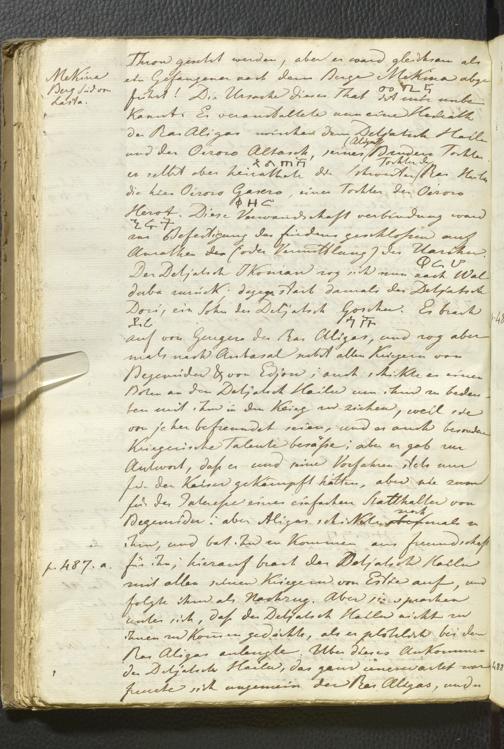 Thron gesetzt werden, aber er ward gleichsam als
ein Gefangener nach dem Berge MeKina abge
führt! Die Ursache dieser That ist mir unbe
kannt. Es veranstaltete nun eine Heirath
MeKina
Berg südvon
Lasta.
der Ras Aligas zwischen dem Detjatsch Hailu
und der Oisoro Altasch, seines Bruders Tochter
(Aligas)
አልጣሽ
er selbst aber heirathete die Tochter des Ras Hailu
die hies Oisoro Gasero, einer Tochter der Oisoro
Herot. Diese Verwandschaft verbindung ward
ሂሩት
zur Befestigung des Friedens geschlossen auf
Anrathen des (oder Vermittlung) des
Der Detjatsch zog sich nun nach Wal
duba zurück. dagegen starb damals der Detjatsch
Dori, ein Sohn des Detjatsch Goschu. Es brach
ዶሪ
ጎሹ
auf von der Ras Aligas, und zog aber
mals nach nebst allen Kriegern von
Begemider & von Edjou; auch schikte er einen
Boten an den Detjatsch Hailu um ihn zu bere
ten mit ihm in den Krieg zu ziehen, weil sie
von jeher befreundet seien, und er auch besondere
Kriegerische Talente besässe; aber er gab zur
Antwort, dass er und seine Vorfahren stets nur
für den Kaiser gekämpft hätten, aber nie
für das Interesse eines einfachen Statthalter von
Begemider: aber Aligas schikte nochmals zu
ihm, und bat ihn zu kommen aus freundschaft
p. 487. a.
für ihn; hierauf brach der Detjatsch Hailu
mit allen seinen Kriegern von auf, und
folgte ihm als Nachzug. Aber sie sprachen
unter sich, dass der Detjatsch Hailu nicht zu
ihnen zu kommen gedächte, als er plötzlich bei dem
Ras Aligas anlangte. Über dieses Ankommen
des Detjatsch Hailu, das ganz unerwartet war
freute sich ungemein der Ras Aligas, und